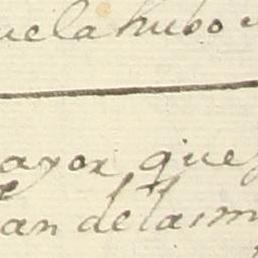 uela hubo
ayor que
an de la im